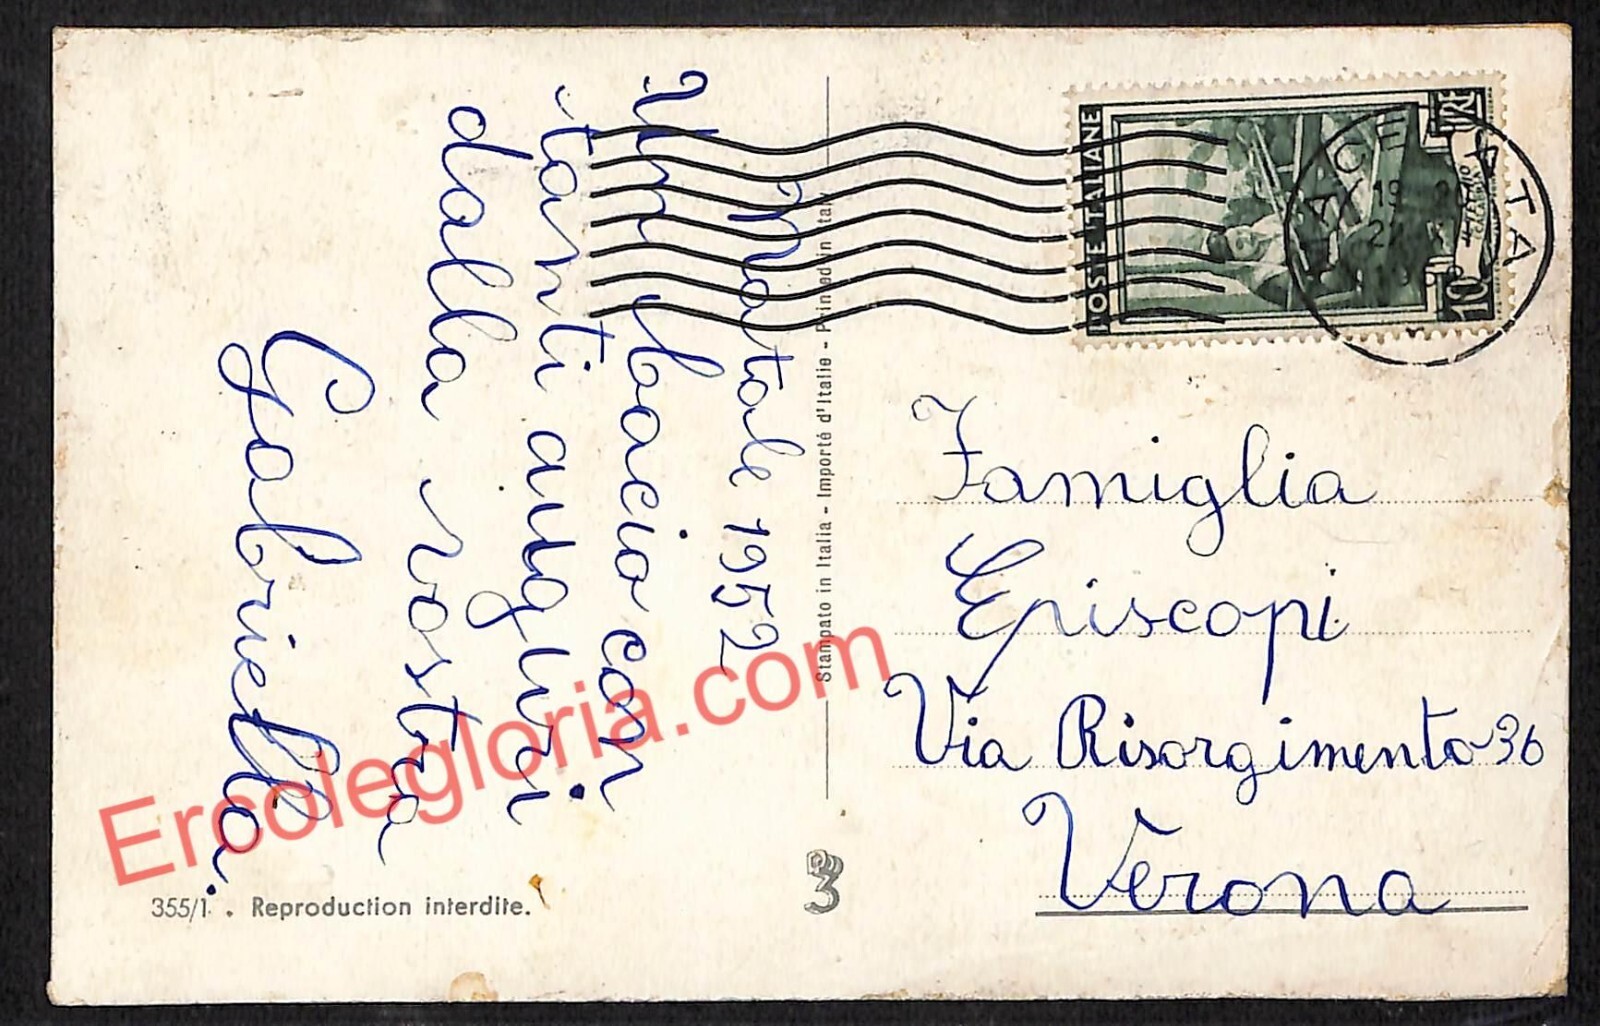 Natale 1952
Un bacio con
tanti auguri
dalla vostra
Gabriella.
355/1. . Reproduction interdite.
Stampato in Italia - Importé d'Italie - Printed in Italy
POSTE ITALIANE
10 LIRE
Famiglia
Episcopi
Via Risorgimento 36
Verona
Ercolegloria.com